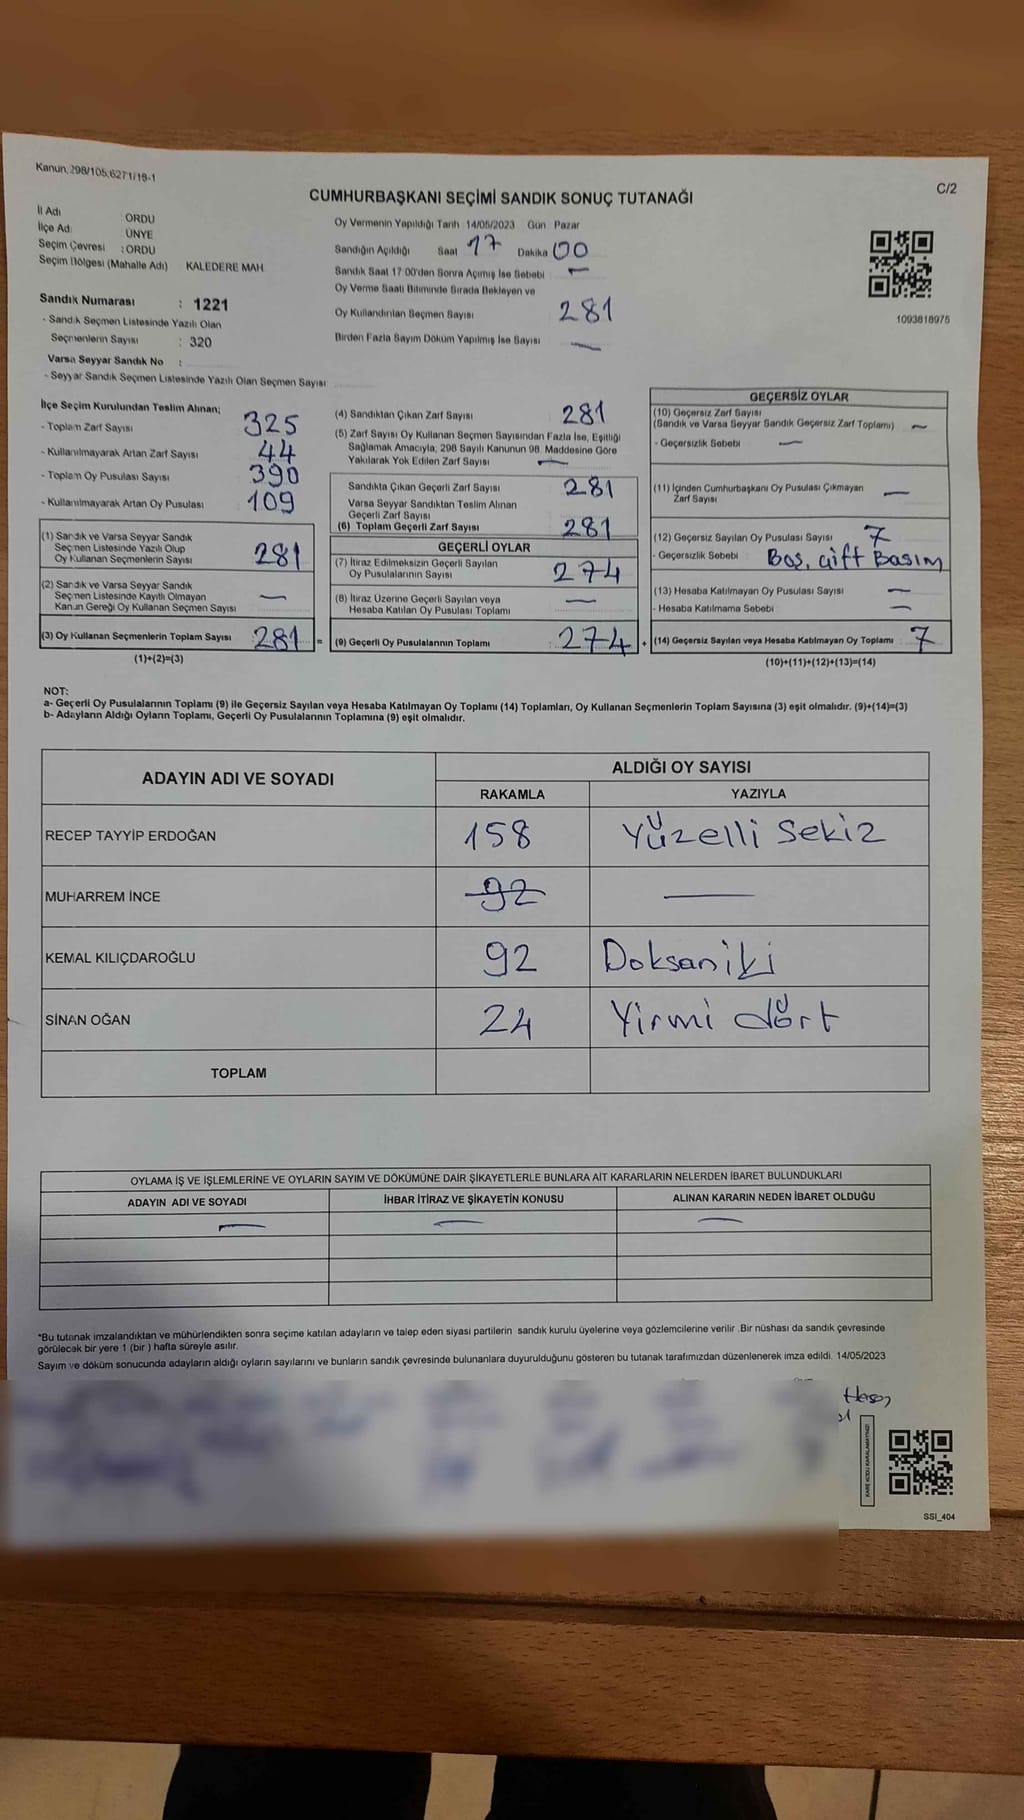 Kanun; 298/105;6271/18-1
C/2
CUMHURBAŞKANI SEÇİMİ SANDIK SONUÇ TUTANAĞI
İl Adı : ORDU
İlçe Adı : ÜNYE
Seçim Çevresi : ORDU
Seçim Bölgesi (Mahalle Adı) KALEDERE MAH.
Sandık Numarası : 1221
- Sandık Seçmen Listesinde Yazılı Olan
Seçmenlerin Sayısı : 320
Varsa Seyyar Sandık No :
- Seyyar Sandık Seçmen Listesinde Yazılı Olan Seçmen Sayısı
Oy Vermenin Yapıldığı Tarih 14/05/2023 Gün Pazar
Sandığın Açıldığı Saat 17 Dakika 00
Sandık Saat 17:00'den Sonra Açımış İse Sebebi —
Oy Verme Saati Bitiminde Sırada Bekleyen ve
Oy Kullandırılan Seçmen Sayısı 281
Birden Fazla Sayım Döküm Yapılmış İse Sayısı —
1093818975
İlçe Seçim Kurulundan Teslim Alınan;
- Toplam Zarf Sayısı 325
- Kullanılmayarak Artan Zarf Sayısı 44
- Toplam Oy Pusulası Sayısı 390
- Kullanılmayarak Artan Oy Pusulası 109
(1) Sandık ve Varsa Seyyar Sandık
Seçmen Listesinde Yazılı Olup
Oy Kullanan Seçmenlerin Sayısı 281
(2) Sandık ve Varsa Seyyar Sandık
Seçmen Listesinde Kayıtlı Olmayan
Kanun Gereği Oy Kullanan Seçmen Sayısı —
(3) Oy Kullanan Seçmenlerin Toplam Sayısı 281 =
(1)+(2)=(3)
(4) Sandıktan Çıkan Zarf Sayısı 281
(5) Zarf Sayısı Oy Kullanan Seçmen Sayısından Fazla İse, Eşitliği
Sağlamak Amacıyla, 298 Sayılı Kanunun 98. Maddesine Göre
Yakılarak Yok Edilen Zarf Sayısı —
Sandıkta Çıkan Geçerli Zarf Sayısı 281
Varsa Seyyar Sandıktan Teslim Alınan
Geçerli Zarf Sayısı
(6) Toplam Geçerli Zarf Sayısı 281
GEÇERLİ OYLAR
(7) İtiraz Edilmeksizin Geçerli Sayılan
Oy Pusulalarının Sayısı 274
(8) İtiraz Üzerine Geçerli Sayılan veya
Hesaba Katılan Oy Pusulası Toplamı —
(9) Geçerli Oy Pusulalarının Toplamı : 274 +
GEÇERSİZ OYLAR
(10) Geçersiz Zarf Sayısı
(Sandık ve Varsa Seyyar Sandık Geçersiz Zarf Toplamı) —
- Geçersizlik Sebebi —
(11) İçinden Cumhurbaşkanı Oy Pusulası Çıkmayan
Zarf Sayısı —
(12) Geçersiz Sayılan Oy Pusulası Sayısı 7
- Geçersizlik Sebebi : Boş, çift Basım
(13) Hesaba Katılmayan Oy Pusulası Sayısı —
- Hesaba Katılmama Sebebi —
(14) Geçersiz Sayılan veya Hesaba Katılmayan Oy Toplamı : 7
(10)+(11)+(12)+(13)=(14)
NOT:
a- Geçerli Oy Pusulalarının Toplamı (9) ile Geçersiz Sayılan veya Hesaba Katılmayan Oy Toplamı (14) Toplamları, Oy Kullanan Seçmenlerin Toplam Sayısına (3) eşit olmalıdır. (9)+(14)=(3)
b- Adayların Aldığı Oyların Toplamı, Geçerli Oy Pusulalarının Toplamına (9) eşit olmalıdır.
ADAYIN ADI VE SOYADI ALDIĞI OY SAYISI
RAKAMLA YAZIYLA
RECEP TAYYİP ERDOĞAN 158 Yüzelli Sekiz
MUHARREM İNCE 92 —
KEMAL KILIÇDAROĞLU 92 Doksaniki
SİNAN OĞAN 24 Yirmi dört
TOPLAM
OYLAMA İŞ VE İŞLEMLERİNE VE OYLARIN SAYIM VE DÖKÜMÜNE DAİR ŞİKAYETLERLE BUNLARA AİT KARARLARIN NELERDEN İBARET BULUNDUKLARI
ADAYIN ADI VE SOYADI İHBAR İTİRAZ VE ŞİKAYETİN KONUSU ALINAN KARARIN NEDEN İBARET OLDUĞU
— — —
*Bu tutanak imzalandıktan ve mühürlendikten sonra seçime katılan adayların ve talep eden siyasi partilerin sandık kurulu üyelerine veya gözlemcilerine verilir. Bir nüshası da sandık çevresinde
görülecek bir yere 1 (bir ) hafta süreyle asılır.
Sayım ve döküm sonucunda adayların aldığı oyların sayılarını ve bunların sandık çevresinde bulunanlara duyurulduğunu gösteren bu tutanak tarafımızdan düzenlenerek imza edildi. 14/05/2023
KARE KODU KARALAMAYINIZ!
SSI_404